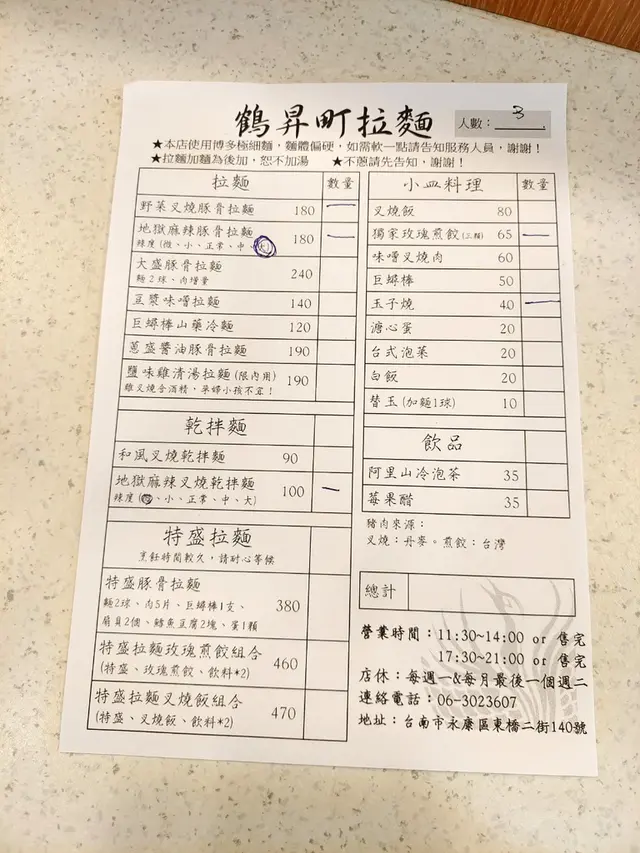 鶴昇町拉麵
人數：3
★本店使用博多極細麵，麵體偏硬，如需軟一點請告知服務人員，謝謝！
★拉麵加麵為後加，恕不加湯 ★不蔥請先告知，謝謝！
拉麵 數量
野菜叉燒豚骨拉麵 180 一
地獄麻辣豚骨拉麵 180 一
辣度(微、小、正常、中、
大盛豚骨拉麵 240
麵2球、肉增量
豆漿味噌拉麵 140
巨蟳棒山藥冷麵 120
蔥盛醬油豚骨拉麵 190
鹽味雞清湯拉麵(限內用) 190
雞叉燒含酒精，孕婦小孩不宜！
乾拌麵
和風叉燒乾拌麵 90
地獄麻辣叉燒乾拌麵 100 一
辣度(、小、正常、中、大)
特盛拉麵
烹飪時間較久，請耐心等候
特盛豚骨拉麵 380
麵2球、肉5片、巨蟳棒1支、
扇貝2個、鱈魚豆腐2塊、蛋1顆
特盛拉麵玫瑰煎餃組合 460
(特盛、玫瑰煎餃、飲料*2)
特盛拉麵叉燒飯組合 470
(特盛、叉燒飯、飲料*2)
小皿料理 數量
叉燒飯 80
獨家玫瑰煎餃(三顆) 65 一
味噌叉燒肉 60
巨蟳棒 50
玉子燒 40 一
溏心蛋 20
台式泡菜 20
白飯 20
替玉(加麵1球) 10
飲品
阿里山冷泡茶 35
莓果醋 35
豬肉來源：
叉燒：丹麥。煎餃：台灣
總計
營業時間：11:30~14:00 or 售完
17:30~21:00 or 售完
店休：每週一&每月最後一個週二
連絡電話：06-3023607
地址：台南市永康區東橋二街140號